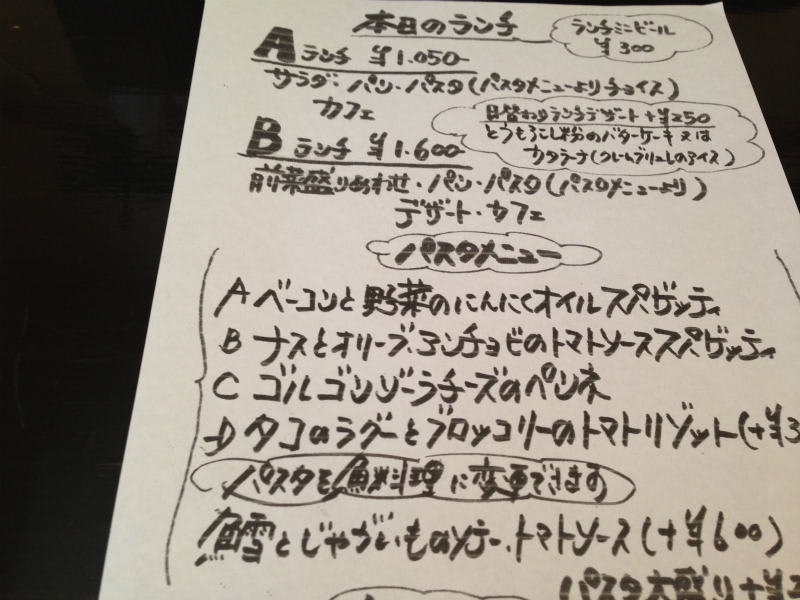 本日のランチ
ランチミニビール
¥300
Aランチ ¥1.050-
サラダ・パン・パスタ(パスタメニューよりチョイス)
カフェ
日替わりランチデザート+¥250
とうもろこし粉のバターケーキ又は
カタラーナ(クレームブリュレのアイス)
Bランチ ¥1.600-
前菜盛りあわせ・パン・パスタ(パスタメニューより)
デザート・カフェ
パスタメニュー
A ベーコンと野菜のにんにくオイルスパゲッティ
B ナスとオリーブ、アンチョビのトマトソーススパゲッティ
C ゴルゴンゾーラチーズのペンネ
D タコのラグーとブロッコリーのトマトリゾット(+¥3
パスタを魚料理に変更できます
鱈とじゃがいものソテー、トマトソース(+¥600)
パスタ大盛り+¥